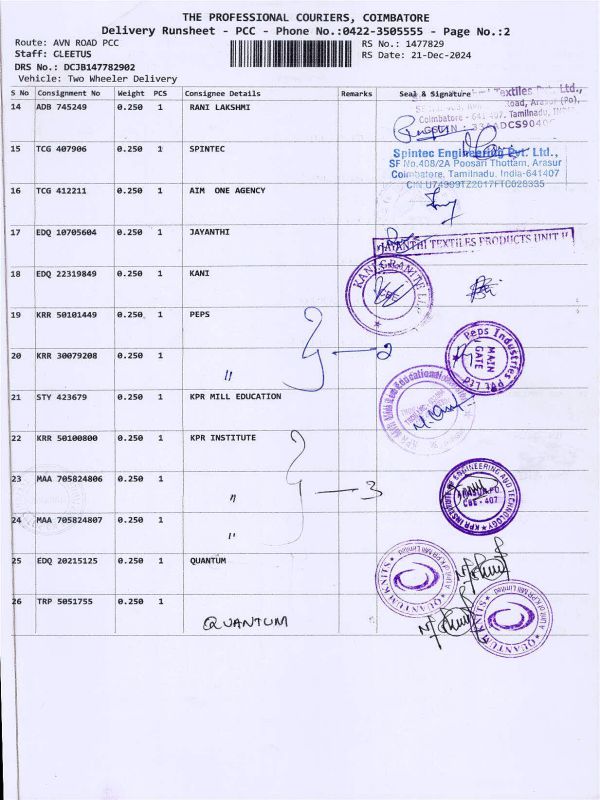 THE PROFESSIONAL COURIERS, COIMBATORE
Delivery Runsheet - PCC - Phone No.:0422-3505555 - Page No.:2
Route: AVN ROAD PCC
RS No.: 1477829
Staff: CLEETUS
RS Date: 21-Dec-2024
DRS No.: DCJB147782902
Vehicle: Two Wheeler Delivery
S No Consignment No Weight PCS Consignee Details Remarks Seal & Signature
14 ADB 745249 0.250 1 RANI LAKSHMI
Textiles Ltd.,
Road, Arasur (Po),
Coimbatore - 641 407. Tamilnadu,
15 TCG 407906 0.250 1 SPINTEC
Spintec Engineering Pvt. Ltd.,
SF No.408/2A Poosari Thottam, Arasur
Coimbatore, Tamilnadu, India-641407
CIN:U74999TZ2017FTC028335
16 TCG 412211 0.250 1 AIM ONE AGENCY
17 EDQ 10705604 0.250 1 JAYANTHI
JAYANTHI TEXTILES PRODUCTS UNIT II
18 EDQ 22319849 0.250 1 KANI
KANI GRANITE LLP
19 KRR 50101449 0.250 1 PEPS
20 KRR 30079208 0.250 1 "
2
Peps Industries Pvt Ltd
MAIN
GATE
21 STY 423679 0.250 1 KPR MILL EDUCATION
22 KRR 50100800 0.250 1 KPR INSTITUTE
23 MAA 705824806 0.250 1 "
3
KPR INSTITUTE OF ENGINEERING AND TECHNOLOGY
ARASUR PO.
CBE - 407
24 MAA 705824807 0.250 1 "
25 EDQ 20215125 0.250 1 QUANTUM
QUANTUM KNITS
A Unit of KPR Mill Limited
26 TRP 5051755 0.250 1
QUANTUM
QUANTUM KNITS
A Unit of KPR Mill Limited